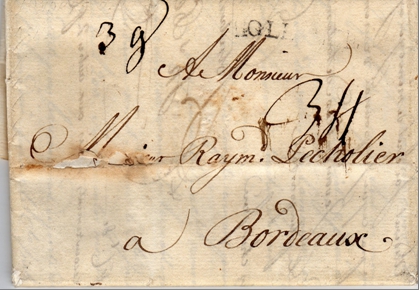 39
A Monsieur
34
Monsieur Raym.d Lecholier
a Bordeaux